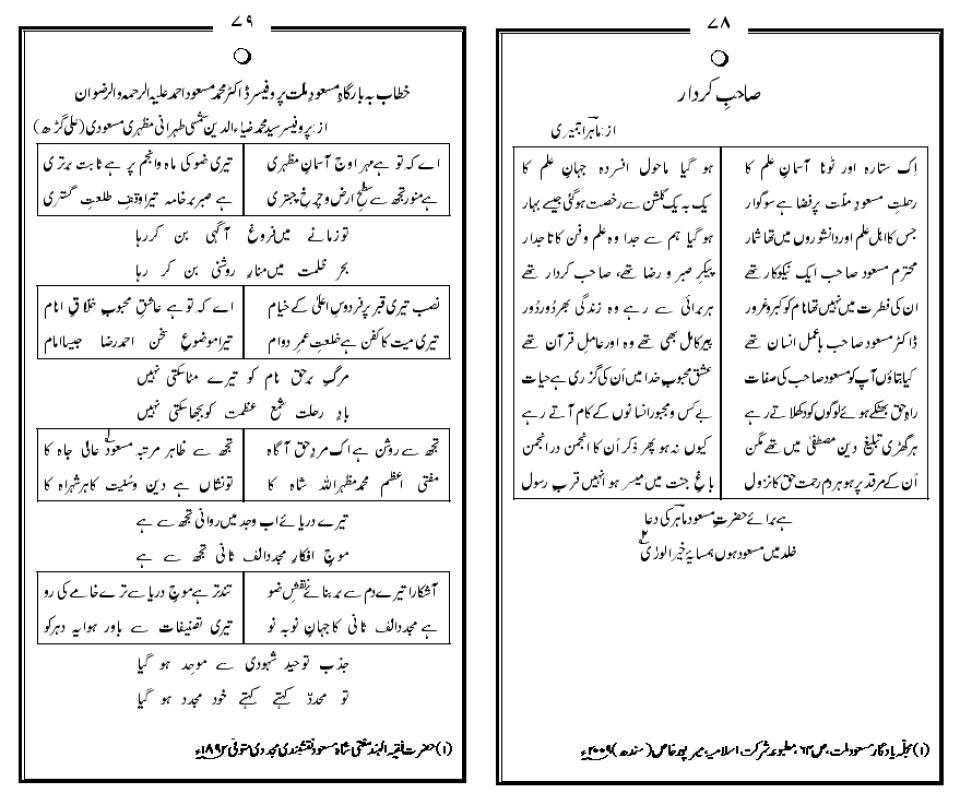 ۷۸
صاحبِ کردار
از: ماہرؔ اجمیری
اِک ستارہ اور ٹوٹا آسمانِ علم کا ہو گیا ماحول افسردہ جہانِ علم کا
رحلتِ مسعودِ ملّت پر فضا ہے سوگوار یک بہ یک گلشن سے رخصت ہوگئی جیسے بہار
جس کا اہلِ علم اور دانشوروں میں تھا شمار ہو گیا ہم سے جدا وہ علم وفن کا تاجدار
محترم مسعود صاحب ایک نیکوکار تھے پیکرِ صبر و رضا تھے، صاحبِ کردار تھے
ان کی فطرت میں نہیں تھا نام کو کبر و غرور ہر برائی سے رہے وہ زندگی بھر دُور دُور
ڈاکٹر مسعود صاحب باعمل انسان تھے پیرِ کامل بھی تھے وہ اور عاملِ قرآن تھے
کیا بتاؤں آپ کو مسعود صاحب کی صفات عشقِ محبوبِ خدا میں اُن کی گزری ہے حیات
راہِ حق بھٹکے ہوئے لوگوں کو دکھلاتے رہے بے کس و مجبور انسانوں کے کام آتے رہے
ہر گھڑی تبلیغِ دینِ مصطفیٰ میں تھے مگن کیوں نہ ہو پھر ذکر اُن کا انجمن در انجمن
اُن کے مرقد پر ہو ہر دم رحمتِ حق کا نزول باغِ جنت میں میسر ہو انہیں قربِ رسول
ہے برائے حضرتِ مسعود ماہرؔ کی دعا
خلد میں مسعود ہوں ہمسایۂ خیرالوریٰ
(۱) مجلّہ یادگار مسعود ملت، ص ۶۳، مطبوعہ شرکت اسلامیہ، میرپور خاص (سندھ) ۲۰۰۹ء
۷۹
خطاب بہ بارگاہِ مسعودِ ملّت پروفیسر ڈاکٹر محمد مسعود احمد علیہ الرحمہ والرضوان
از: پروفیسر سید محمد ضیاء الدین شمسی طہرانی مظہری مسعودی (علی گڑھ)
اے کہ تو ہے مہرِ اوجِ آسمانِ مظہری تیری ضو کی ماہ وانجم پر ہے ثابت برتری
ہے منور تجھ سے سطحِ ارض و چرخِ چنبری ہے صبر برِ خامہ تیرا وقفِ طلعت گستری
تو زمانے میں فروغِ آگہی بن کر رہا
بحرِ ظلمت میں منارِ روشنی بن کر رہا
نصب تیری قبر پر فردوسِ اعلیٰ کے خیام اے کہ تو ہے عاشقِ محبوبِ خلاقِ انام
تیری میت کا کفن ہے خلعتِ عمرِ دوام تیرا موضوعِ سخن احمد رضا جیسا امام
مرگِ برحق نام کو تیرے مٹا سکتی نہیں
بادِ رحلت شمعِ عظمت کو بجھا سکتی نہیں
تجھ سے روشن ہے اک مردِ حق آگاہ تجھ سے ظاہر مرتبہ مسعودؔ۱ عالی جاہ کا
مفتی اعظم محمد مظہر اللہ شاہ کا تو نشاں ہے دین و سُنیت کا ہر شہراہ کا
تیرے دریائے اب وجد میں روانی تجھ سے ہے
موجِ افکارِ مجدد الف ثانی تجھ سے ہے
آشکارا تیرے دم سے ہر بنائے نقشِ ضو تندتر ہے موجِ دریا سے ترے خامے کی رو
ہے مجدد الف ثانی کا جہانِ نو بہ نو تیری تصنیفات سے باور ہوا یہ دہر کو
جذبِ توحیدِ شہودی سے موحد ہو گیا
تو مجددؔ کہتے کہتے خود مجدد ہو گیا
(۱) حضرت فقیہ الہند مفتی شاہ مسعود نقشبندی مجددی متوفی ۱۸۹۲ء